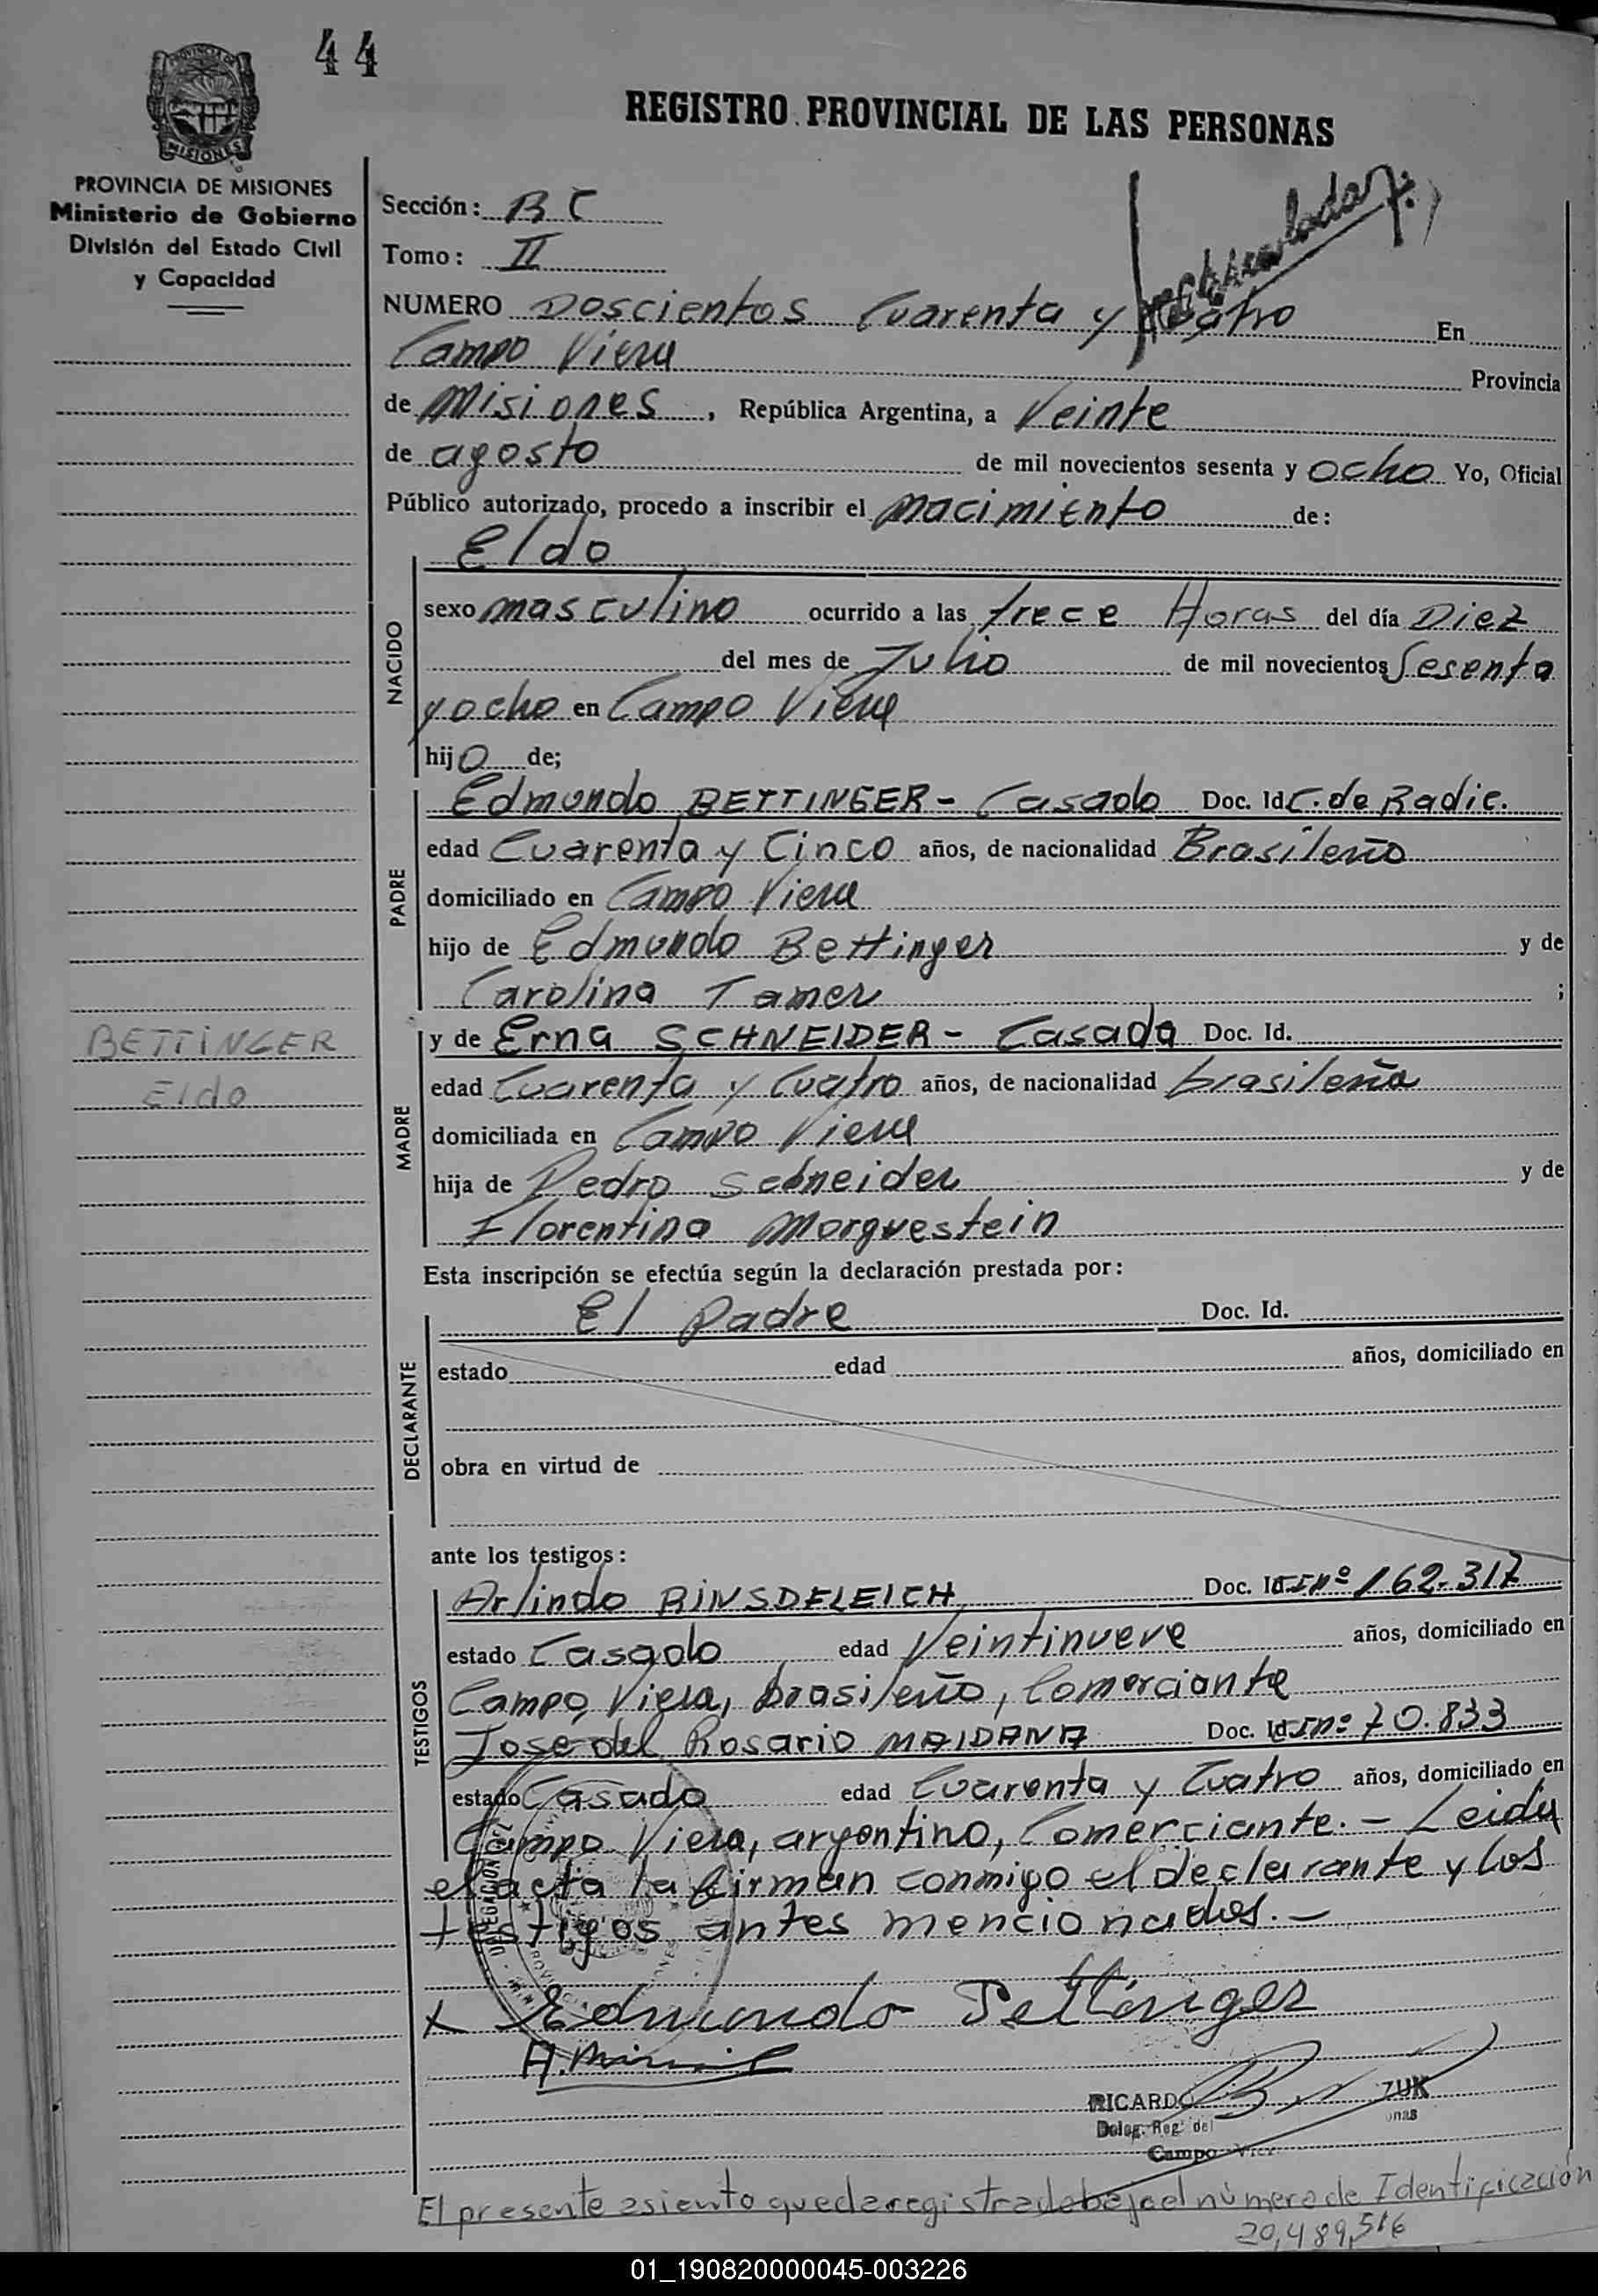 44
PROVINCIA DE
MISIONES
REGISTRO PROVINCIAL DE LAS PERSONAS
PROVINCIA DE MISIONES
Ministerio de Gobierno
División del Estado Civil
y Capacidad
Sección: BC
Tomo: II
NUMERO Doscientos Cuarenta y Cuatro En
Campo Viera Provincia
de Misiones, República Argentina, a Veinte
de agosto de mil novecientos sesenta y ocho Yo, Oficial
Público autorizado, procedo a inscribir el nacimiento de:
NACIDO
Eldo
sexo masculino ocurrido a las trece Horas del día Diez
del mes de Julio de mil novecientos Sesenta
y ocho en Campo Viera
hijo de;
PADRE
Edmundo BETTINGER - Casado Doc. Id C. de Radic.
edad Cuarenta y Cinco años, de nacionalidad Brasileño
domiciliado en Campo Viera
hijo de Edmundo Bettinger y de
Carolina Tamer ;
BETTINGER
Eldo
MADRE
y de Erna SCHNEIDER - Casada Doc. Id.
edad Cuarenta y Cuatro años, de nacionalidad brasileña
domiciliada en Campo Viera
hija de Pedro Schneider y de
Florentina Morguestein
Esta inscripción se efectúa según la declaración prestada por:
DECLARANTE
El padre Doc. Id.
estado edad años, domiciliado en
obra en virtud de
ante los testigos:
TESTIGOS
Arlindo RINSDELEICH Doc. Id. nº 162.317
estado Casado edad Veintinueve años, domiciliado en
Campo Viera, brasileño, Comerciante
Jose del Rosario MAIDANA Doc. Id. nº 70.833
estado Casado edad Cuarenta y Cuatro años, domiciliado en
Campo Viera, argentino, Comerciante. - Leida
el acta la firman conmigo el declarante y los
testigos antes mencionados. -
x Edmundo Bettinger
RICARDO ZUK
Deleg. Reg. del
Campo Vier
El presente asiento queda registrado bajo el número de Identificación
20,489,516
01_190820000045-003226